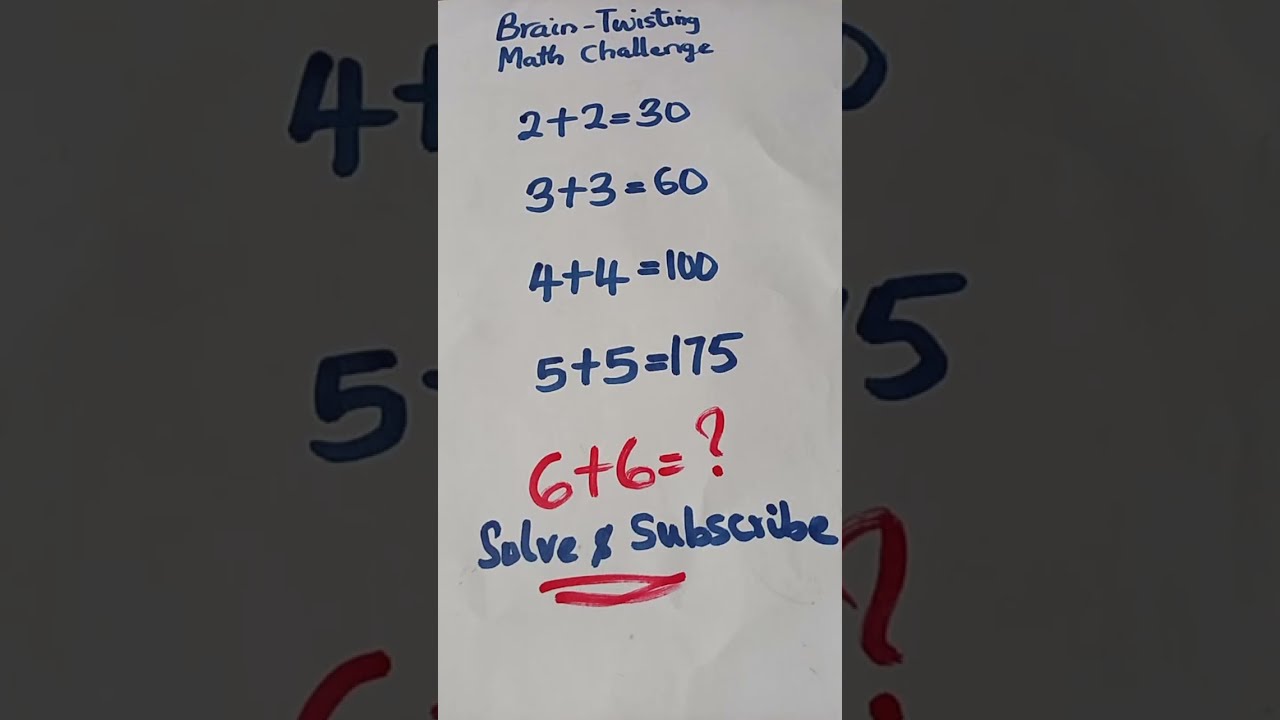 Brain-Twisting
Math Challenge
2+2=30
3+3=60
4+4=100
5+5=175
6+6=?
Solve & Subscribe